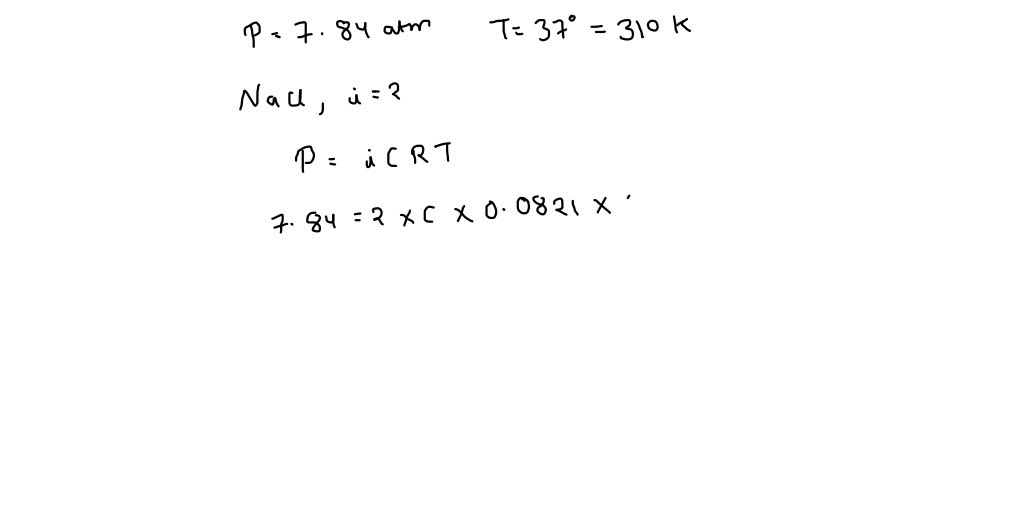 P = 7.84 atm T = 37° = 310 K
NaCl, i = 2
P = i C R T
7.84 = 2 x C x 0.0821 x